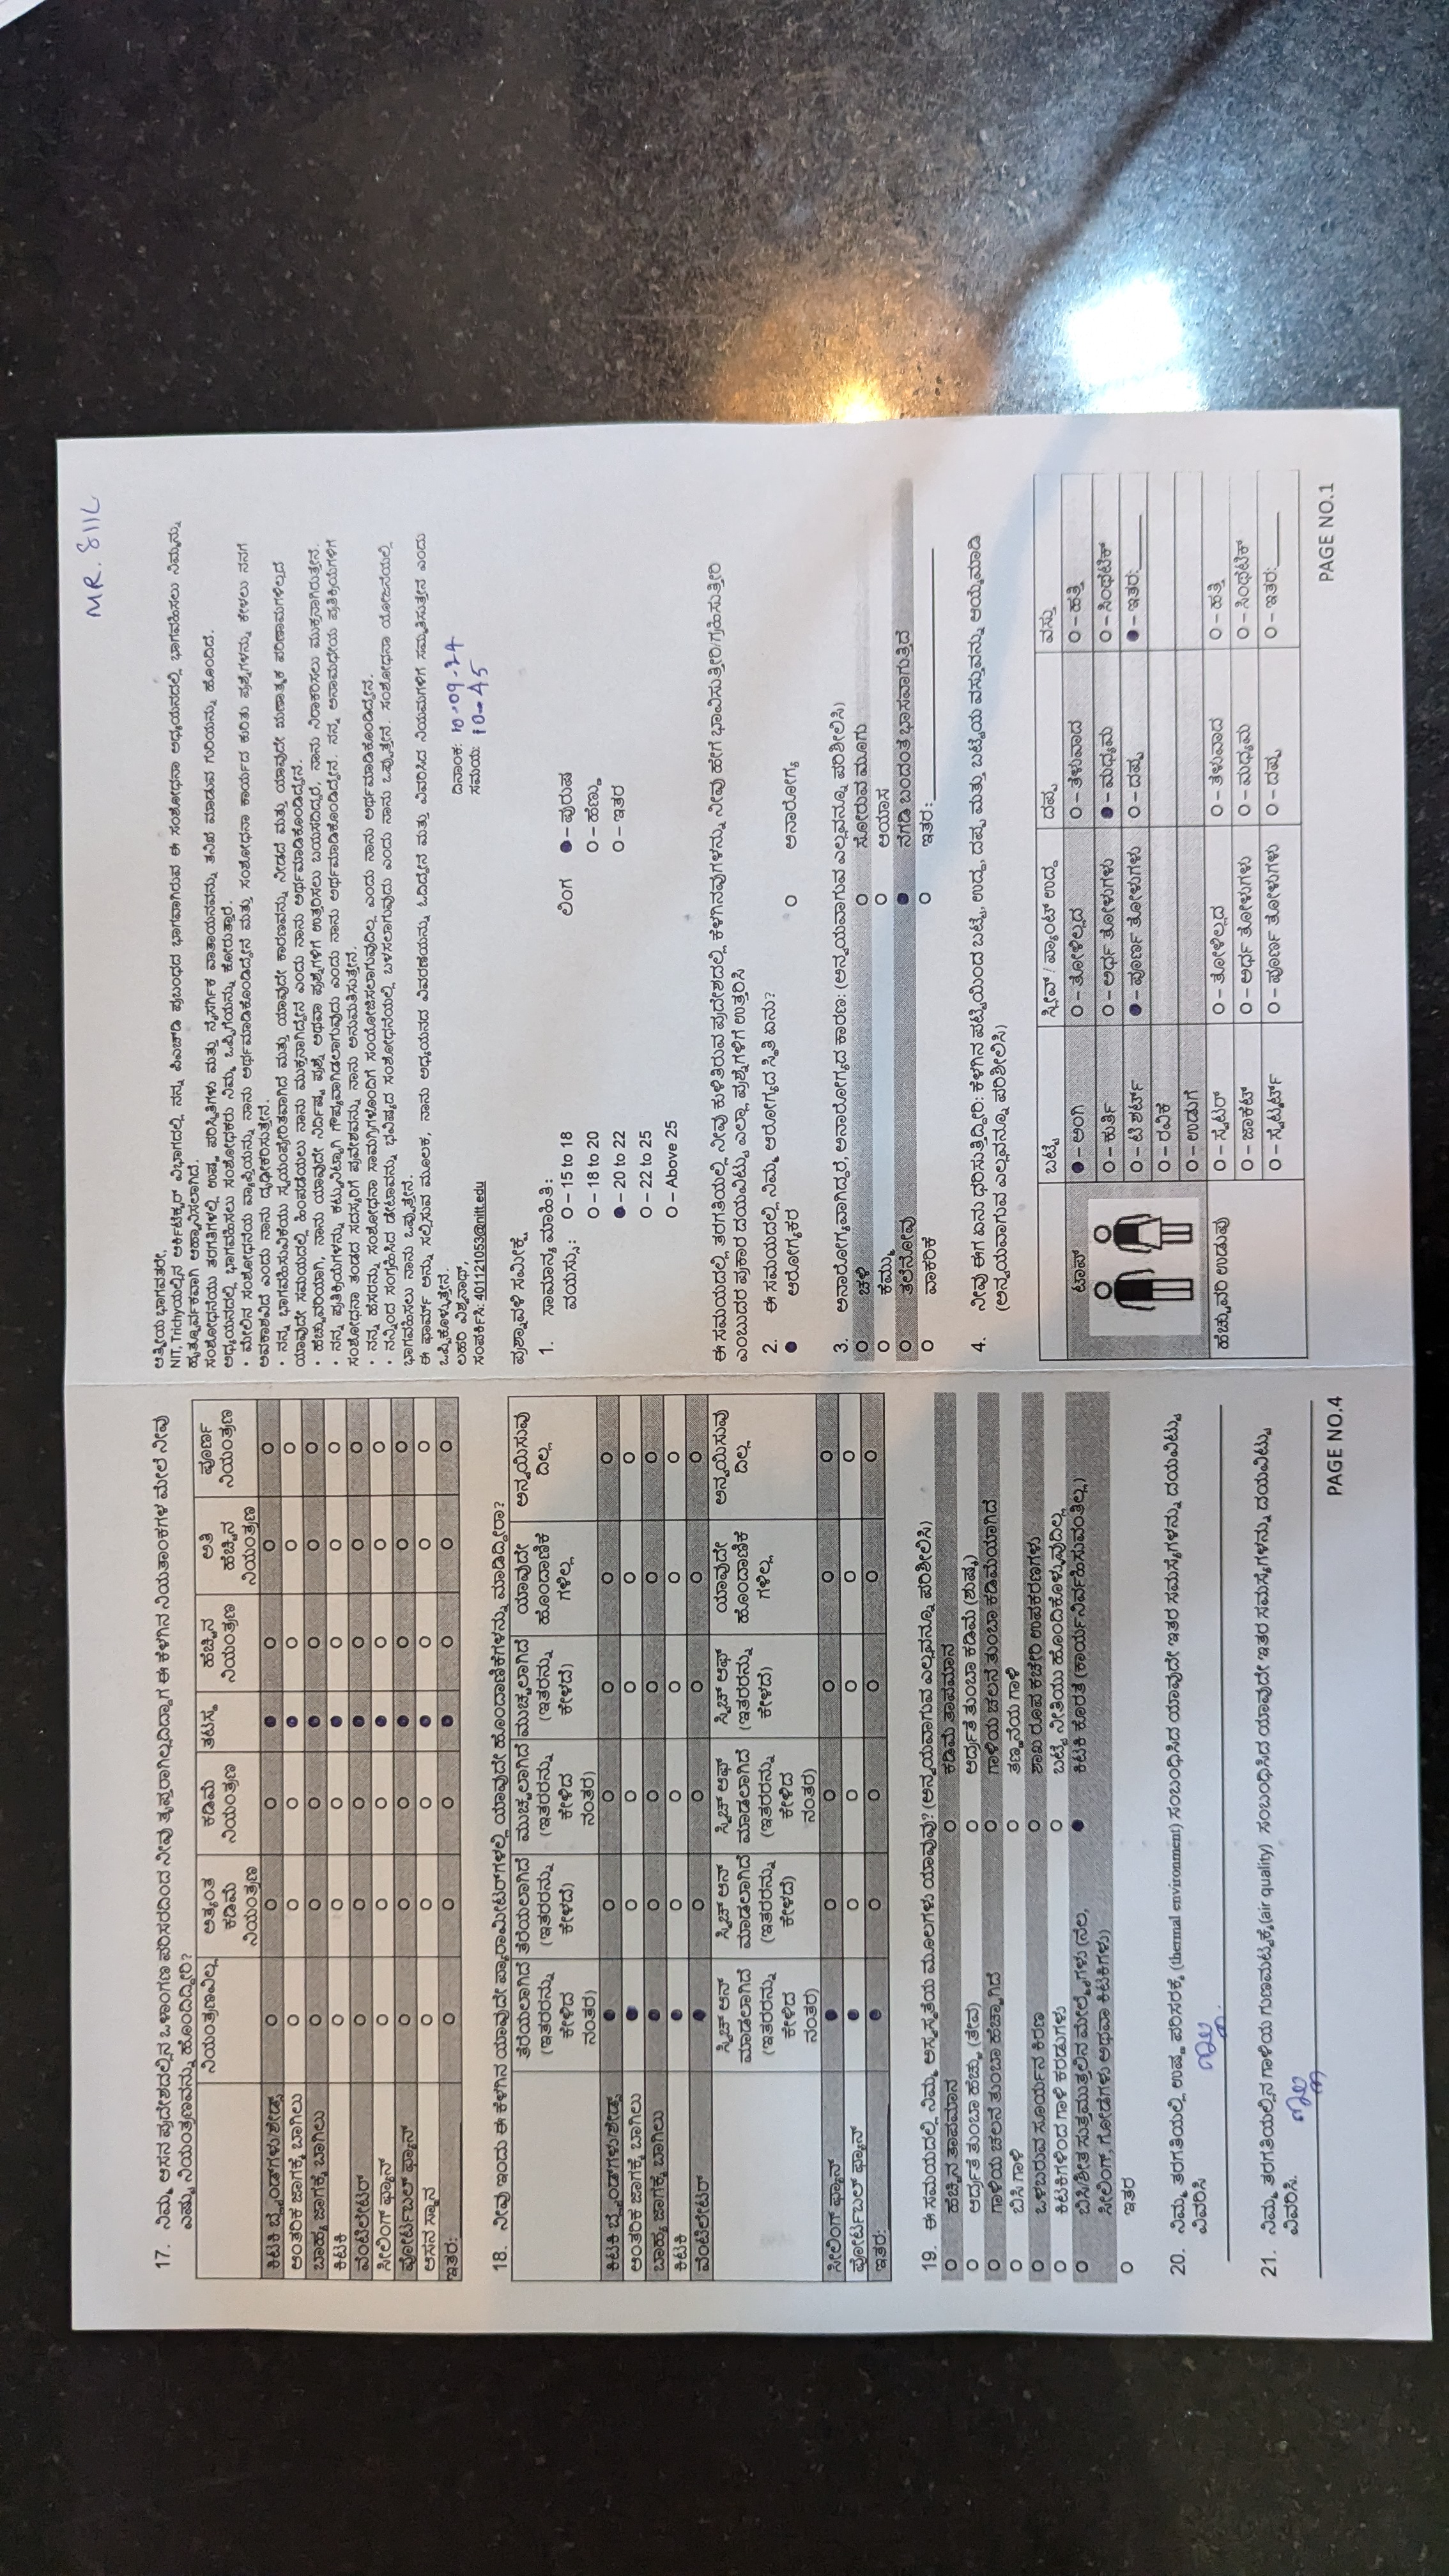 17. ನಿಮ್ಮ ಆಸನ ಪ್ರದೇಶದಲ್ಲಿನ ಒಳಾಂಗಣ ಪರಿಸರದಿಂದ ನೀವು ತೃಪ್ತರಾಗಿಲ್ಲದಿದ್ದಾಗ ಈ ಕೆಳಗಿನ ನಿಯತಾಂಕಗಳ ಮೇಲೆ ನೀವು
ಎಷ್ಟು ನಿಯಂತ್ರಣವನ್ನು ಹೊಂದಿದ್ದೀರಿ?
ನಿಯಂತ್ರಣವಿಲ್ಲ ಅತ್ಯಂತ ಕಡಿಮೆ ನಿಯಂತ್ರಣ ಕಡಿಮೆ ನಿಯಂತ್ರಣ ತಟಸ್ಥ ಹೆಚ್ಚಿನ ನಿಯಂತ್ರಣ ಅತಿ ಹೆಚ್ಚಿನ ನಿಯಂತ್ರಣ ಪೂರ್ಣ ನಿಯಂತ್ರಣ
ಕಿಟಕಿ ಬ್ಲೈಂಡ್‌ಗಳು/ಶೇಡ್ಸ್
ಆಂತರಿಕ ಜಾಗಕ್ಕೆ ಬಾಗಿಲು
ಬಾಹ್ಯ ಜಾಗಕ್ಕೆ ಬಾಗಿಲು
ಕಿಟಕಿ
ವೆಂಟಿಲೇಟರ್
ಸೀಲಿಂಗ್ ಫ್ಯಾನ್
ಪೋರ್ಟಬಲ್ ಫ್ಯಾನ್
ಆಸನ ಸ್ಥಾನ
ಇತರ:
18. ನೀವು ಇಂದು ಈ ಕೆಳಗಿನ ಯಾವುದೇ ಪ್ಯಾರಾಮೀಟರ್‌ಗಳಲ್ಲಿ ಯಾವುದೇ ಹೊಂದಾಣಿಕೆಗಳನ್ನು ಮಾಡಿದ್ದೀರಾ?
ತೆರೆಯಲಾಗಿದೆ (ಇತರರನ್ನು ಕೇಳಿದ ನಂತರ) ತೆರೆಯಲಾಗಿದೆ (ಇತರರನ್ನು ಕೇಳದೆ) ಮುಚ್ಚಲಾಗಿದೆ (ಇತರರನ್ನು ಕೇಳಿದ ನಂತರ) ಮುಚ್ಚಲಾಗಿದೆ (ಇತರನ್ನು ಕೇಳದೆ) ಯಾವುದೇ ಹೊಂದಾಣಿಕೆ ಗಳಿಲ್ಲ ಅನ್ವಯಿಸುವು ದಿಲ್ಲ
ಕಿಟಕಿ ಬ್ಲೈಂಡ್‌ಗಳು/ಶೇಡ್ಸ್
ಆಂತರಿಕ ಜಾಗಕ್ಕೆ ಬಾಗಿಲು
ಬಾಹ್ಯ ಜಾಗಕ್ಕೆ ಬಾಗಿಲು
ಕಿಟಕಿ
ವೆಂಟಿಲೇಟರ್
ಸ್ವಿಚ್ ಆನ್ ಮಾಡಲಾಗಿದೆ (ಇತರರನ್ನು ಕೇಳಿದ ನಂತರ) ಸ್ವಿಚ್ ಆನ್ ಮಾಡಲಾಗಿದೆ (ಇತರರನ್ನು ಕೇಳದೆ) ಸ್ವಿಚ್ ಆಫ್ ಮಾಡಲಾಗಿದೆ (ಇತರರನ್ನು ಕೇಳಿದ ನಂತರ) ಸ್ವಿಚ್ ಆಫ್ (ಇತರರನ್ನು ಕೇಳದೆ) ಯಾವುದೇ ಹೊಂದಾಣಿಕೆ ಗಳಿಲ್ಲ ಅನ್ವಯಿಸುವು ದಿಲ್ಲ
ಸೀಲಿಂಗ್ ಫ್ಯಾನ್
ಪೋರ್ಟಬಲ್ ಫ್ಯಾನ್
ಇತರ:
19. ಈ ಸಮಯದಲ್ಲಿ ನಿಮ್ಮ ಅಸ್ವಸ್ಥತೆಯ ಮೂಲಗಳು ಯಾವುವು? (ಅನ್ವಯವಾಗುವ ಎಲ್ಲವನ್ನೂ ಪರಿಶೀಲಿಸಿ)
ಹೆಚ್ಚಿನ ತಾಪಮಾನ ಕಡಿಮೆ ತಾಪಮಾನ
ಆರ್ದ್ರತೆ ತುಂಬಾ ಹೆಚ್ಚು (ತೇವ) ಆರ್ದ್ರತೆ ತುಂಬಾ ಕಡಿಮೆ (ಶುಷ್ಕ)
ಗಾಳಿಯ ಚಲನೆ ತುಂಬಾ ಹೆಚ್ಚಾಗಿದೆ ಗಾಳಿಯ ಚಲನೆ ತುಂಬಾ ಕಡಿಮೆಯಾಗಿದೆ
ಬಿಸಿ ಗಾಳಿ ತಣ್ಣನೆಯ ಗಾಳಿ
ಒಳಬರುವ ಸೂರ್ಯನ ಕಿರಣ ಶಾಖ ರೂಪ ಕಚೇರಿ ಉಪಕರಣಗಳು
ಕಿಟಕಿಗಳಿಂದ ಗಾಳಿ ಕರಡುಗಳು ಬಟ್ಟೆ ನೀತಿಯು ಹೊಂದಿಕೊಳ್ಳುವುದಿಲ್ಲ
ಬಿಸಿ/ಶೀತ ಸುತ್ತಮುತ್ತಲಿನ ಮೇಲ್ಮೈಗಳು (ನೆಲ, ಕಿಟಕಿ ಕೊರತೆ (ಕಾರ್ಯನಿರ್ವಹಿಸುವಂತಿಲ್ಲ.)
ಸೀಲಿಂಗ್, ಗೋಡೆಗಳು ಅಥವಾ ಕಿಟಕಿಗಳು)
ಇತರ
20. ನಿಮ್ಮ ತರಗತಿಯಲ್ಲಿ ಉಷ್ಣ ಪರಿಸರಕ್ಕೆ (thermal environment) ಸಂಬಂಧಿಸಿದ ಯಾವುದೇ ಇತರ ಸಮಸ್ಯೆಗಳನ್ನು ದಯವಿಟ್ಟು
ವಿವರಿಸಿ
ಇಲ್ಲ.
21. ನಿಮ್ಮ ತರಗತಿಯಲ್ಲಿನ ಗಾಳಿಯ ಗುಣಮಟ್ಟಕ್ಕೆ(air quality) ಸಂಬಂಧಿಸಿದ ಯಾವುದೇ ಇತರ ಸಮಸ್ಯೆಗಳನ್ನು ದಯವಿಟ್ಟು
ವಿವರಿಸಿ.
ಇಲ್ಲ
PAGE NO.4
MR. 811L
ಆತ್ಮೀಯ ಭಾಗವತರೇ,
NIT, Trichyಯಲ್ಲಿನ ಆರ್ಕಿಟೆಕ್ಚರ್ ವಿಭಾಗದಲ್ಲಿ ನನ್ನ ಪಿಎಚ್‌ಡಿ ಪ್ರಬಂಧದ ಭಾಗವಾಗಿರುವ ಈ ಸಂಶೋಧನಾ ಅಧ್ಯಯನದಲ್ಲಿ ಭಾಗವಹಿಸಲು ನಿಮ್ಮನ್ನು
ಹೃತ್ಪೂರ್ವಕವಾಗಿ ಆಹ್ವಾನಿಸಲಾಗಿದೆ.
ಸಂಶೋಧನೆಯು ತರಗತಿಗಳಲ್ಲಿ ಉಷ್ಣ ಪರಿಸ್ಥಿತಿಗಳು ಮತ್ತು ನೈಸರ್ಗಿಕ ವಾತಾಯನವನ್ನು ತನಿಖೆ ಮಾಡುವ ಗುರಿಯನ್ನು ಹೊಂದಿದೆ.
ಅಧ್ಯಯನದಲ್ಲಿ ಭಾಗವಹಿಸಲು ಸಂಶೋಧಕರು ನಿಮ್ಮ ಒಪ್ಪಿಗೆಯನ್ನು ಕೋರುತ್ತಾರೆ.
• ಮೇಲಿನ ಸಂಶೋಧನೆಯ ವ್ಯಾಪ್ತಿಯನ್ನು ನಾನು ಅರ್ಥಮಾಡಿಕೊಂಡಿದ್ದೇನೆ ಮತ್ತು ಸಂಶೋಧನಾ ಕಾರ್ಯದ ಕುರಿತು ಪ್ರಶ್ನೆಗಳನ್ನು ಕೇಳಲು ನನಗೆ
ಅವಕಾಶವಿದೆ ಎಂದು ನಾನು ದೃಢೀಕರಿಸುತ್ತೇನೆ.
• ನನ್ನ ಭಾಗವಹಿಸುವಿಕೆಯು ಸ್ವಯಂಪ್ರೇರಿತವಾಗಿದೆ ಮತ್ತು ಯಾವುದೇ ಕಾರಣವನ್ನು ನೀಡದೆ ಮತ್ತು ಯಾವುದೇ ಋಣಾತ್ಮಕ ಪರಿಣಾಮಗಳಿಲ್ಲದೆ
ಯಾವುದೇ ಸಮಯದಲ್ಲಿ ಹಿಂಪಡೆಯಲು ನಾನು ಮುಕ್ತನಾಗಿದ್ದೇನೆ ಎಂದು ನಾನು ಅರ್ಥಮಾಡಿಕೊಂಡಿದ್ದೇನೆ.
• ಹೆಚ್ಚುವರಿಯಾಗಿ, ನಾನು ಯಾವುದೇ ನಿರ್ದಿಷ್ಟ ಪ್ರಶ್ನೆ ಅಥವಾ ಪ್ರಶ್ನೆಗಳಿಗೆ ಉತ್ತರಿಸಲು ಬಯಸದಿದ್ದರೆ, ನಾನು ನಿರಾಕರಿಸಲು ಮುಕ್ತನಾಗಿರುತ್ತೇನೆ.
• ನನ್ನ ಪ್ರತಿಕ್ರಿಯೆಗಳನ್ನು ಕಟ್ಟುನಿಟ್ಟಾಗಿ ಗೌಪ್ಯವಾಗಿಡಲಾಗುವುದು ಎಂದು ನಾನು ಅರ್ಥಮಾಡಿಕೊಂಡಿದ್ದೇನೆ. ನನ್ನ ಅನಾಮಧೇಯ ಪ್ರತಿಕ್ರಿಯೆಗಳಿಗೆ
ಸಂಶೋಧನಾ ತಂಡದ ಸದಸ್ಯರಿಗೆ ಪ್ರವೇಶವನ್ನು ನಾನು ಅನುಮತಿಸುತ್ತೇನೆ.
• ನನ್ನ ಹೆಸರನ್ನು ಸಂಶೋಧನಾ ಸಾಮಗ್ರಿಗಳೊಂದಿಗೆ ಸಂಯೋಜಿಸಲಾಗುವುದಿಲ್ಲ ಎಂದು ನಾನು ಅರ್ಥಮಾಡಿಕೊಂಡಿದ್ದೇನೆ.
• ನನ್ನಿಂದ ಸಂಗ್ರಹಿಸಿದ ಡೇಟಾವನ್ನು ಭವಿಷ್ಯದ ಸಂಶೋಧನೆಯಲ್ಲಿ ಬಳಸಲಾಗುವುದು ಎಂದು ನಾನು ಒಪ್ಪುತ್ತೇನೆ. ಸಂಶೋಧನಾ ಯೋಜನೆಯಲ್ಲಿ
ಭಾಗವಹಿಸಲು ನಾನು ಒಪ್ಪುತ್ತೇನೆ.
ಈ ಫಾರ್ಮ್ ಅನ್ನು ಸಲ್ಲಿಸುವ ಮೂಲಕ, ನಾನು ಅಧ್ಯಯನದ ವಿವರಣೆಯನ್ನು ಓದಿದ್ದೇನೆ ಮತ್ತು ವಿವರಿಸಿದ ನಿಯಮಗಳಿಗೆ ಸಮ್ಮತಿಸುತ್ತೇನೆ ಎಂದು
ಒಪ್ಪಿಕೊಳ್ಳುತ್ತೇನೆ.
ಲಹರಿ ವಿಶ್ವನಾಥ್, ದಿನಾಂಕ: 10.09.24
ಸಂಪರ್ಕಿಸಿ: 401121053@nitt.edu ಸಮಯ: 10-45
ಪ್ರಶ್ನಾವಳಿ ಸಮೀಕ್ಷೆ
1. ಸಾಮಾನ್ಯ ಮಾಹಿತಿ:
ವಯಸ್ಸು: O – 15 to 18 ಲಿಂಗ – ಪುರುಷ
O – 18 to 20 O – ಹೆಣ್ಣು
– 20 to 22 O – ಇತರ
O – 22 to 25
O – Above 25
ಈ ಸಮಯದಲ್ಲಿ ತರಗತಿಯಲ್ಲಿ ನೀವು ಕುಳಿತಿರುವ ಪ್ರದೇಶದಲ್ಲಿ ಕೆಳಗಿನವುಗಳನ್ನು ನೀವು ಹೇಗೆ ಭಾವಿಸುತ್ತೀರಿ/ಗ್ರಹಿಸುತ್ತೀರಿ
ಎಂಬುದರ ಪ್ರಕಾರ ದಯವಿಟ್ಟು ಎಲ್ಲಾ ಪ್ರಶ್ನೆಗಳಿಗೆ ಉತ್ತರಿಸಿ
2. ಈ ಸಮಯದಲ್ಲಿ ನಿಮ್ಮ ಆರೋಗ್ಯದ ಸ್ಥಿತಿ ಏನು?
ಆರೋಗ್ಯಕರ O ಅನಾರೋಗ್ಯ
3. ಅನಾರೋಗ್ಯವಾಗಿದ್ದರೆ, ಅನಾರೋಗ್ಯದ ಕಾರಣ: (ಅನ್ವಯವಾಗುವ ಎಲ್ಲವನ್ನೂ ಪರಿಶೀಲಿಸಿ)
O ಚಳಿ O ಸೋರುವ ಮೂಗು
O ಕೆಮ್ಮು O ಆಯಾಸ
O ತಲೆನೋವು ನೆಗಡಿ ಬಂದಂತೆ ಭಾಸವಾಗುತ್ತಿದೆ
O ವಾಕರಿಕೆ O ಇತರ:
4. ನೀವು ಈಗ ಏನು ಧರಿಸುತ್ತಿದ್ದೀರಿ: ಕೆಳಗಿನ ಪಟ್ಟಿಯಿಂದ ಬಟ್ಟೆ, ಉದ್ದ, ದಪ್ಪ ಮತ್ತು ಬಟ್ಟೆಯ ವಸ್ತುವನ್ನು ಆಯ್ಕೆಮಾಡಿ
(ಅನ್ವಯವಾಗುವ ಎಲ್ಲವನ್ನೂ ಪರಿಶೀಲಿಸಿ)
ಬಟ್ಟೆ ಸ್ಲೀವ್ / ಪ್ಯಾಂಟ್ ಉದ್ದ ದಪ್ಪ ವಸ್ತು
ಟಾಪ್ – ಅಂಗಿ O – ತೋಳಿಲ್ಲದ O – ತೆಳುವಾದ O – ಹತ್ತಿ
O – ಕುರ್ತಿ O – ಅರ್ಧ ತೋಳುಗಳು – ಮಧ್ಯಮ O – ಸಿಂಥೆಟಿಕ್
O – ಟಿ ಶರ್ಟ್ – ಪೂರ್ಣ ತೋಳುಗಳು O – ದಪ್ಪ – ಇತರ:
O – ರವಿಕೆ
O – ಉಡುಗೆ
ಹೆಚ್ಚುವರಿ ಉಡುಪು O – ಸ್ವೆಟರ್ O – ತೋಳಿಲ್ಲದ O – ತೆಳುವಾದ O – ಹತ್ತಿ
O – ಜಾಕೆಟ್ O – ಅರ್ಧ ತೋಳುಗಳು O – ಮಧ್ಯಮ O – ಸಿಂಥೆಟಿಕ್
O – ಸ್ವೆಟ್ಶರ್ಟ್ O – ಪೂರ್ಣ ತೋಳುಗಳು O – ದಪ್ಪ O – ಇತರ:
PAGE NO.1